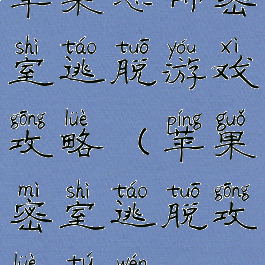 shì táo tuō yóu xì
室逃脱游戏
gōng lüè píng guǒ
攻略（苹果
mì shì táo tuō gōng
密室逃脱攻
lüè tú wén